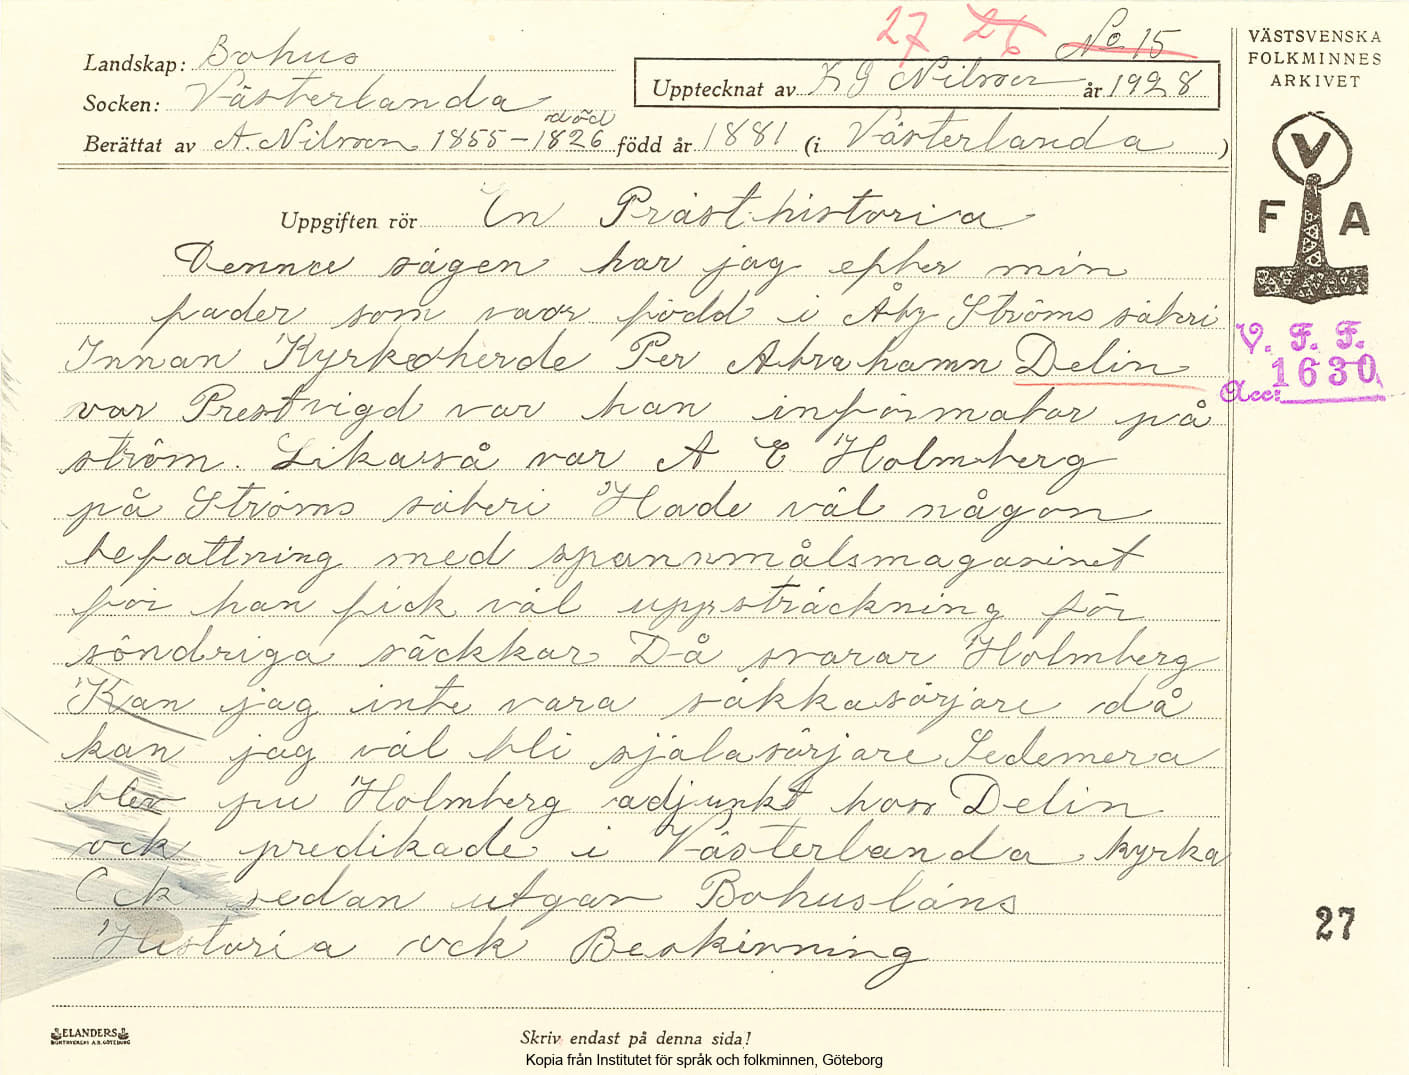 27 26 No 15
Landskap: Bohus
Socken: Västerlanda
Upptecknat av K G Nilsson år 1928
död
Berättat av A. Nilsson 1855-1826 född år 1881 (i Västerlanda)
Uppgiften rör En Prästhistoria
Denna sägen har jag efter min
fader som var född i Åby Ströms säteri
Innan Kyrkoherde Per Abrahamn Delin
var Prestvigd var han informator på
ström. Likasså var A E Holmberg
på Ströms säteri Hade väl någon
befattning med spannmålsmagasinet
för han fick väl uppsträckning för
söndriga säckkar Då svarar Holmberg
Kan jag inte vara säkkasörjare då
kan jag väl bli själasörjare Sedemera
blev nu Holmberg adjunkt hos Delin
ock predikade i Västerlanda kyrka
Ock sedan utgav Bohusläns
Historia ock Beskirvning
VÄSTSVENSKA
FOLKMINNES
ARKIVET
V
F A
V. F. F.
Acc: 1630
27
ELANDERS
BOKTRYCKERI A.B. GÖTEBORG
Skriv endast på denna sida!
Kopia från Institutet för språk och folkminnen, Göteborg